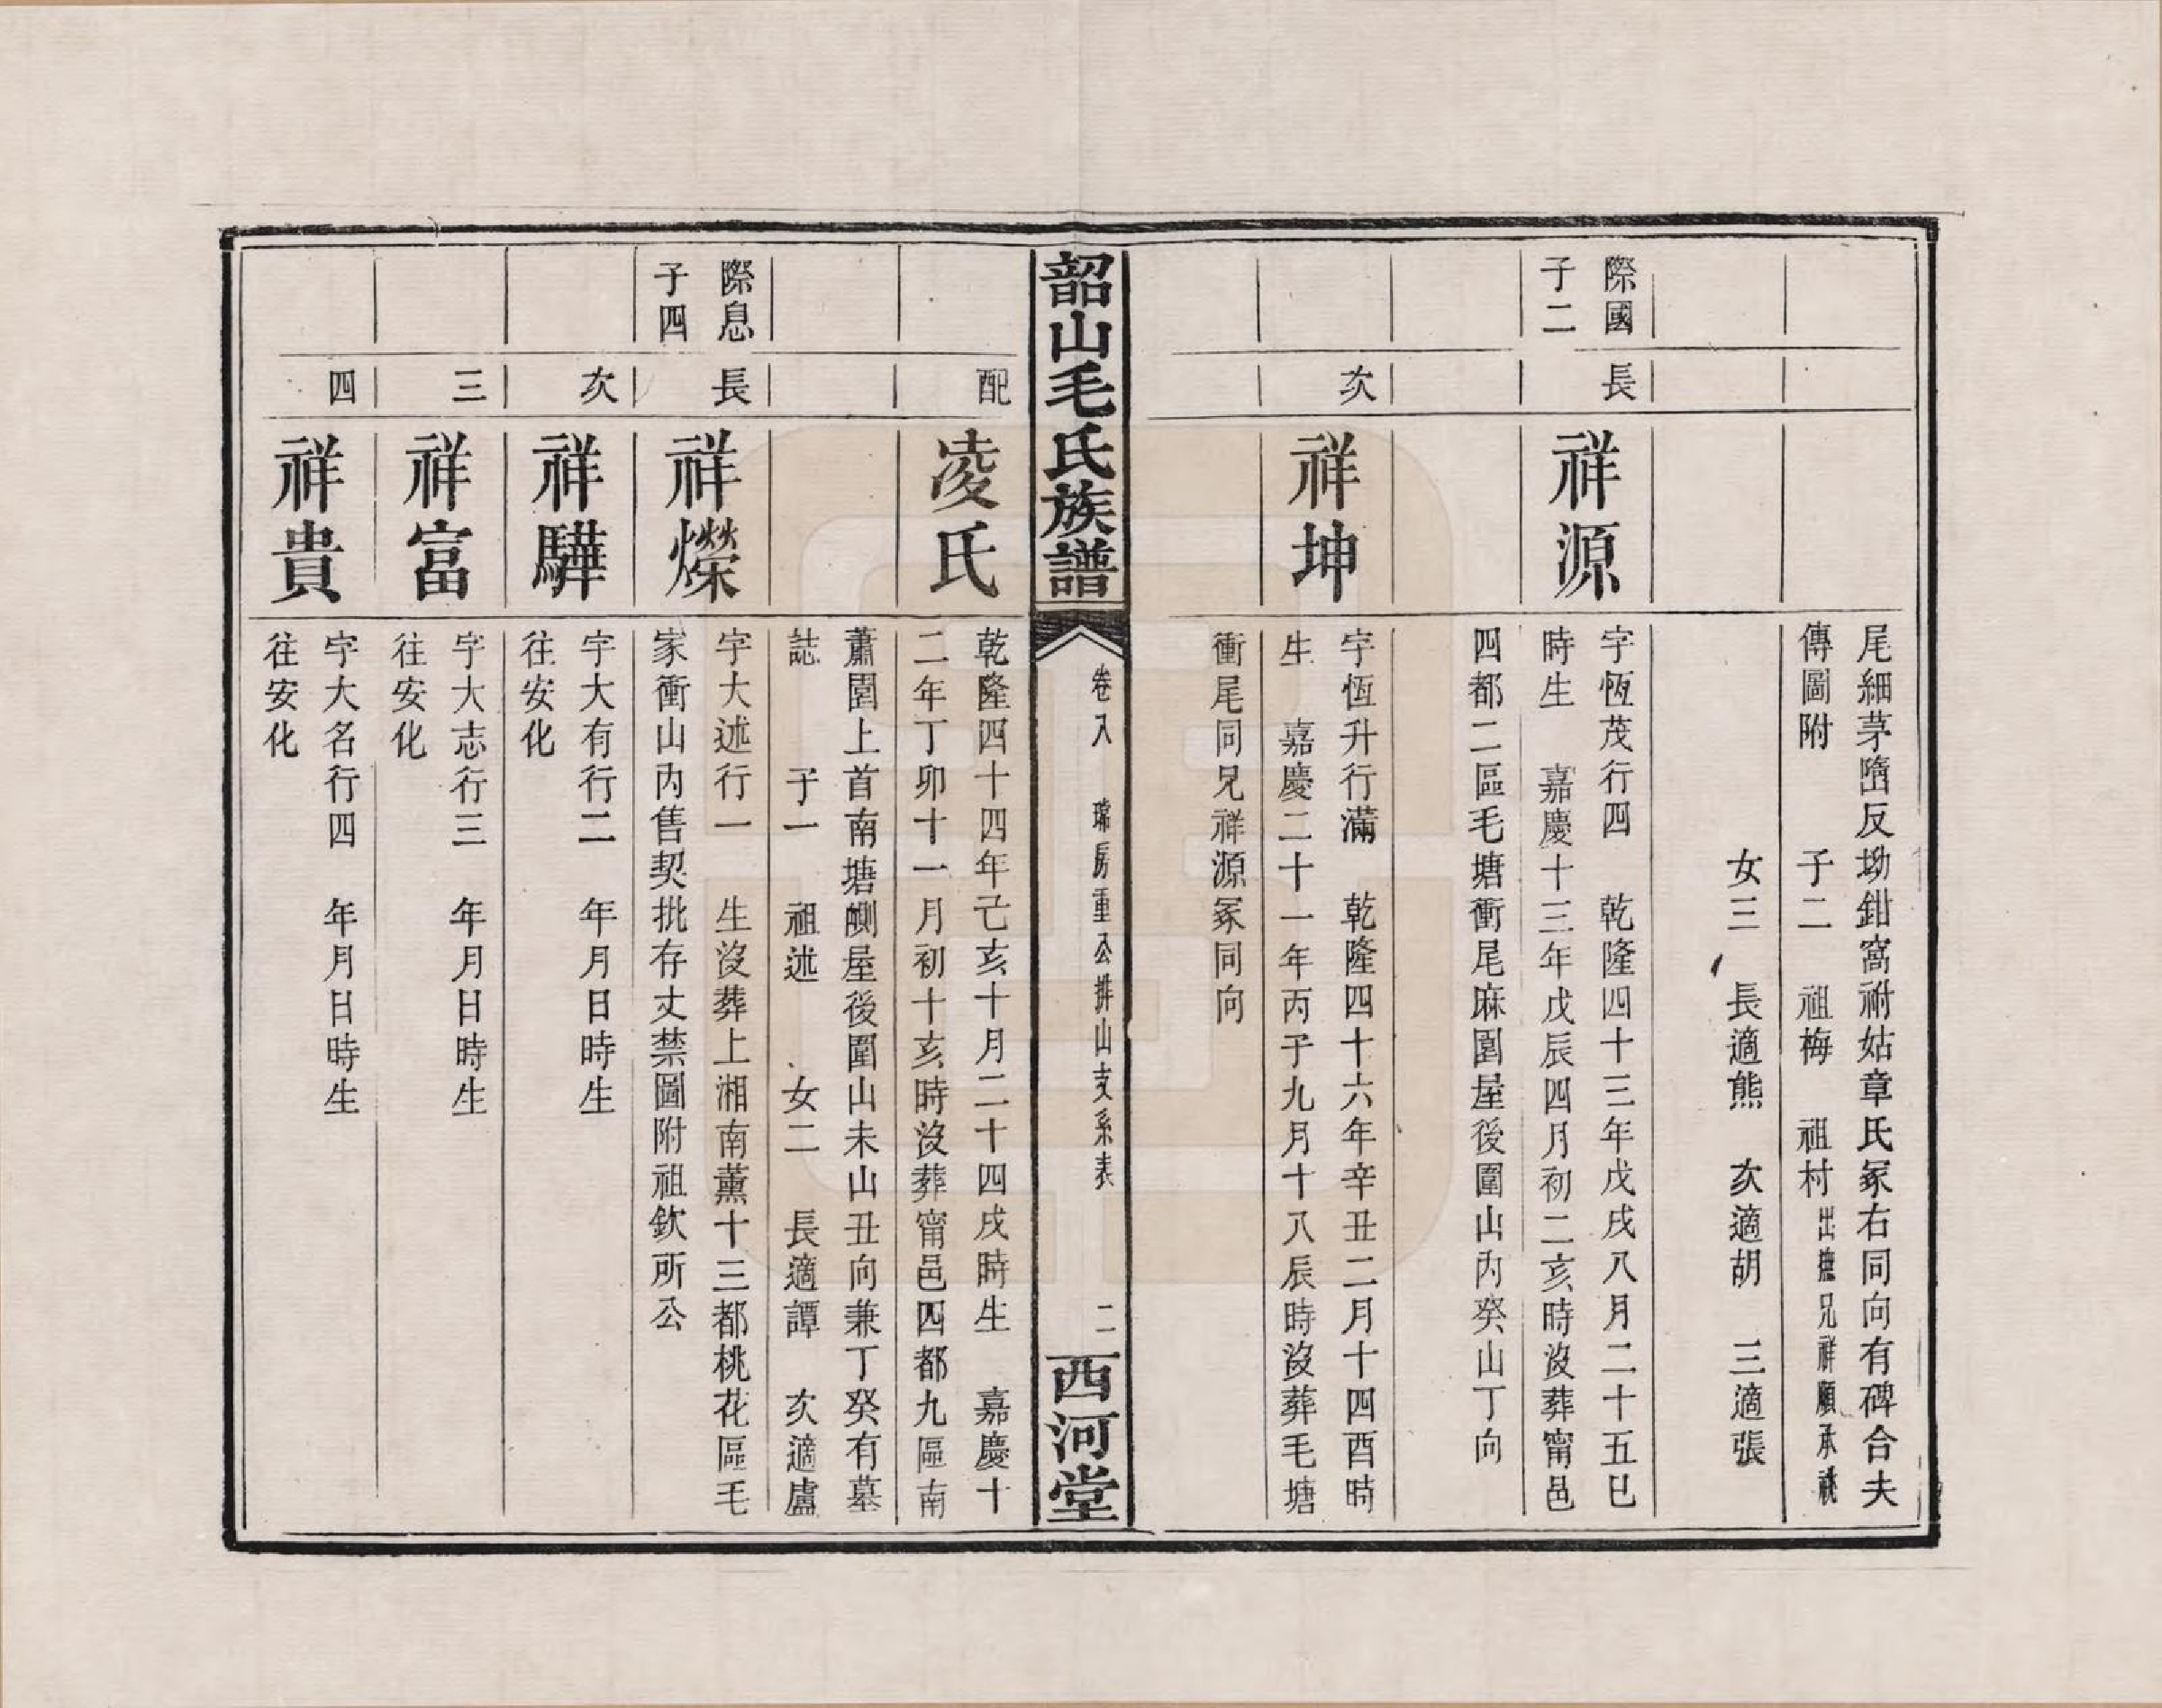 尾細茅㘯反坳鉗窩祔姑章氏冢右同向有碑合夫
傳圖附　子二　祖梅　祖村出撫兄祥願承祧
女三　長適熊　次適胡　三適張
際國
子二
長
祥源
字恆茂行四　乾隆四十三年戊戌八月二十五巳
時生　嘉慶十三年戊辰四月初二亥時沒葬甯邑
四都二區毛塘衝尾麻園屋後圍山內癸山丁向
次
祥坤
字恆升行滿　乾隆四十六年辛丑二月十四酉時
生　嘉慶二十一年丙子九月十八辰時沒葬毛塘
衝尾同兄祥源冢同向
韶山毛氏族譜
卷八　瑞房重公排山支系表
二
西河堂
配
凌氏
乾隆四十四年己亥十月二十四戌時生　嘉慶十
二年丁卯十一月初十亥時沒葬甯邑四都九區南
蕭園上首南塘側屋後圍山未山丑向兼丁癸有墓
誌　子一　祖述　女二　長適譚　次適盧
際息
子四
長
祥爃
字大述行一　生沒葬上湘南薰十三都桃花區毛
家衝山內售契批存丈禁圖附祖欽所公
次
祥驊
字大有行二　年月日時生
往安化
三
祥富
字大志行三　年月日時生
往安化
四
祥貴
字大名行四　年月日時生
往安化